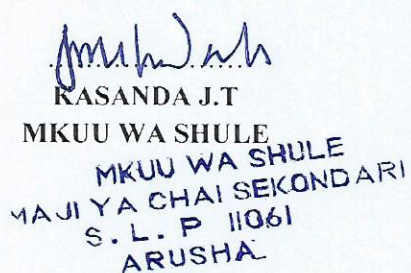 KASANDA J.T
MKUU WA SHULE
MKUU WA SHULE
MAJI YA CHAI SEKONDARI
S. L. P 11061
ARUSHA